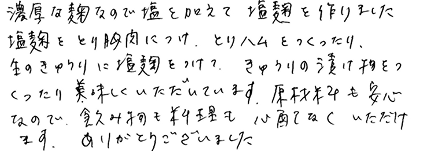 濃厚な麹なので塩を加えて塩麹を作りました
塩麹をとり胸肉につけ、とりハムをつくったり、
生のきゅうりに塩麹をつけて、きゅうりの漬け物をつ
くったり美味しくいただいています。原材料も安心
なので、飲み物も料理も心配なくいただけ
ます。ありがとうございました